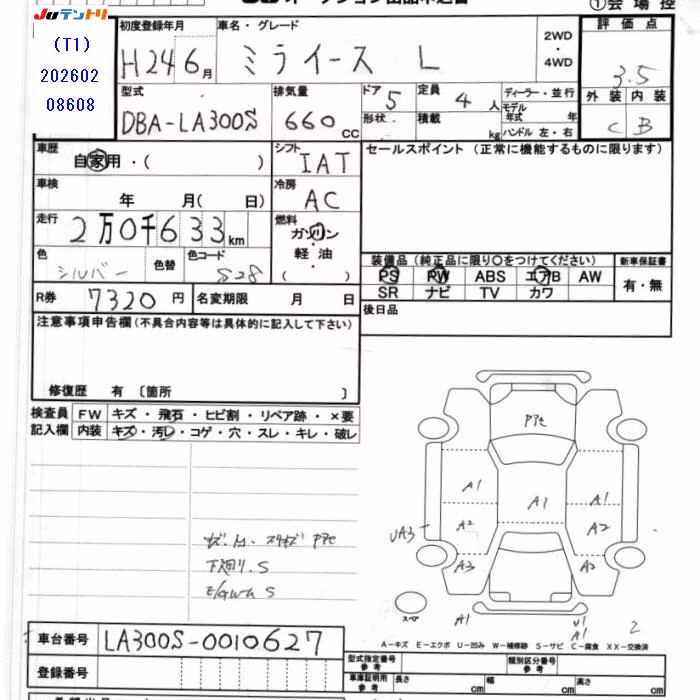 JUテントリ
(T1)
202602
08608
①会場控
初度登録年月
H24 6月
車名・グレード
ミライース L
2WD
・
4WD
評価点
3.5
外装 内装
C B
型式
DBA-LA300S
排気量
660 CC
ドア 5
形状
定員 4 人
積載 kg
ディーラー・並行
モデル
年式 年
ハンドル 左・右
車歴
自家用・( )
シフト
IAT
セールスポイント (正常に機能するものに限ります)
車検
年 月( 日)
冷房
AC
走行
2万0千633km
燃料
ガソリン
・
軽油
( )
色
シルバー
色替
色コード
S28
R券 7320円
名変期限 月 日
装備品(純正品に限り○をつけてください)
PS PW ABS エアB AW
SR ナビ TV カワ
新車保証書
有・無
後日品
注意事項申告欄(不具合内容等は具体的に記入して下さい)
修復歴 有 〔箇所 〕
検査員
記入欄
FW キズ・飛石・ヒビ割・リペア跡・×要
内装 キズ・汚レ・コゲ・穴・スレ・キレ・破レ
下廻り.S
A1
A1
A1
UA3
A2
A2
A3
A2
スペア
A1
U1
A1
2
A−キズ E−エクボ U−凹み W−補修跡 S−サビ C−腐食 XX−交換済
車台番号 LA300S-0010627
登録番号
型式指定番号
参考
類別区分番号
参考
車庫証明用
参考
長さ cm
幅 cm
高さ cm